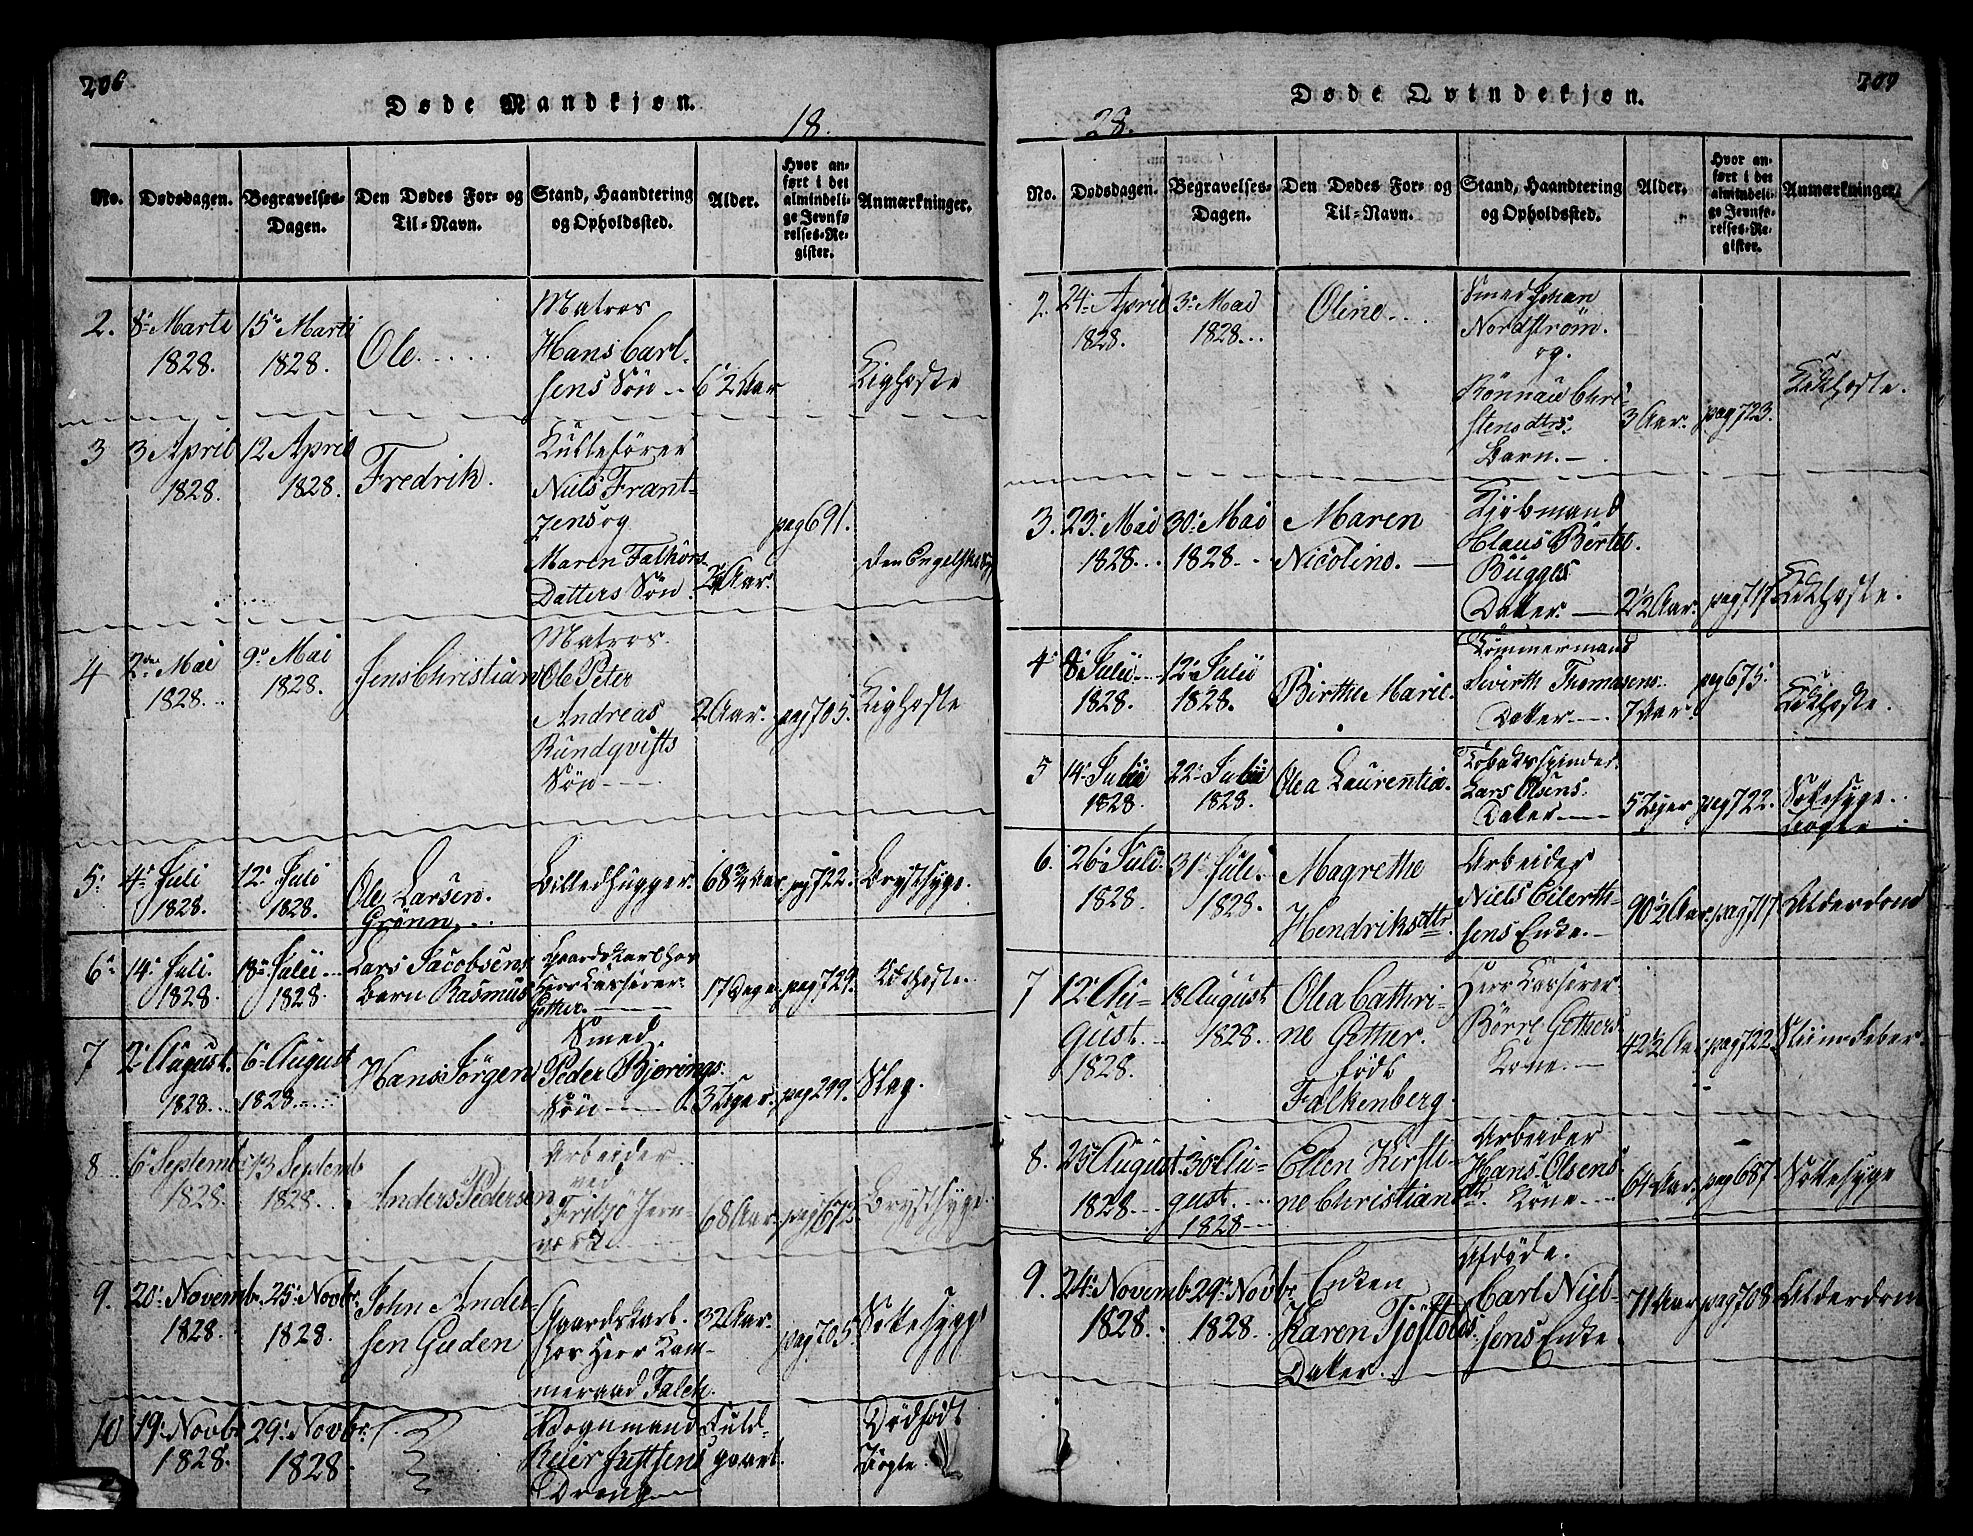 206
Døde Mandkjøn.
18.
No.
Dødsdagen.
Begravelses-
Dagen.
Den Dødes For- og
Til-Navn.
Stand, Haandtering
og Opholdssted.
Alder.
Hvor an-
ført i det
almindeli-
ge Jevnfø-
relses-Re-
gister.
Anmærkninger.
2. 8de Marti
1828.
15de Marti
1828.
Ole
Matros
Hans Carl-
sens Søn
Aar
Kighoste
3 3 April
1828.
12 April
1828.
Fredrik.
Kullefører
Niels Frant-
zens og
Maren Falkørs
Datters Søn.
Aar.
pag 691.
den Engelske Syge
4 2den Mai
1828.
9de Mai
1828.
Jens Christian
Matros
Ole Peter
Andreas
Rundqvists
Søn
2 Aar.
pag 705.
Kighoste
5. 4de Juli
1828.
12. Juli
1828.
Ole Larsen
Grønn
Billedhugger.
68 3/4 Aar
pag 722.
Brystsyge.
6. 14. Juli.
1828.
18de Julii
1828.
Lars Jacobsens
barn Rasmus
Gaardskarl hos
Herr Kasserer
Gether.
17 Uger
pag 729.
Kikhoste.
7 2. August.
1828.
6. August
1828
Hans Jørgen
Smed
Peder Bjørings
Søn
3 Uger.
pag 299.
Slag.
8 6 Septemb
1828.
13 Septemb
1828.
Anders Pedersen
Arbeider
ved
Fritzø Jern-
værk
68 Aar
pag 675.
Brystsyge
9. 20. Novemb.
1828.
25. Novbr.
1828.
John Ander-
sen Guden
Gaardskarl
hos Herr Kam-
meraad Falch.
32 Aar.
pag 705.
Sottesyge
10 19. Novbr
1828.
29. Novbr.
1828
Vognmand
Reier Justsens
Dreng
Fuld-
baaret.
Dødfødt
209
Døde Qvindekjøn.
28.
No.
Dødsdagen.
Begravelses-
Dagen.
Den Dødes For- og
Til-Navn.
Stand, Haandtering
og Opholdssted.
Alder.
Hvor an-
ført i det
almindeli-
ge Jevnfø-
relses-Re-
gister.
Anmærkninger.
2. 24. April
1828.
3. Mai
1828.
Oline
Smed Johan
Nordstrøm.
og.
Rønnau Chri-
stensdtrs.
Barn.
3 Aar.
pag 723.
Kikhoste.
3. 23. Mai
1828.
30. Mai
1828.
Maren
Nicoline.
Kjøbmand
Claus Bertel
Bugges
Datter.
2 1/2 Aar.
pag 717
Kikhoste.
4. 8. Julii
1828.
12. Julii
1828.
Birthe Marie.
Tømmermand
Sivirth Thomasens
Datter
7 Aar.
pag 675.
Kikhoste.
5 14. Julii
1828.
22. Julii
1828.
Olea Laurentia.
Tobaksspinder
Lars Olsens
Datter
5 Uger
pag 722.
Sottesyge.
6. 26. Juli.
1828.
31. Juli.
1828.
Magrethe
Hendriksdtr.
Arbeider
Niels Eilerth-
sens Enke.
90 1/2 Aar.
pag 717
Alderdom
7 12. Au-
gust.
1828.
18 August
1828.
Olea Cathri-
ne Gether.
født
Falkenberg.
Herr Kasserer
Børre Gethers
Kone.
42 1/2 Aar
pag 722.
Sliim-Feber
8. 25 August
1828
30 Au-
gust.
1828
Ellen Kirsti-
ne Christiansdtr.
Arbeider
Hans Olsens
Kone.
64 Aar.
pag 687.
Sottesyge
9. 24. Novemb
1828.
29. Novbr.
1828.
Enken
Karen Tjøstolvs
Datter.
Afdøde.
Carl Niel-
sens Enke.
71 Aar
pag 708
Alderdom